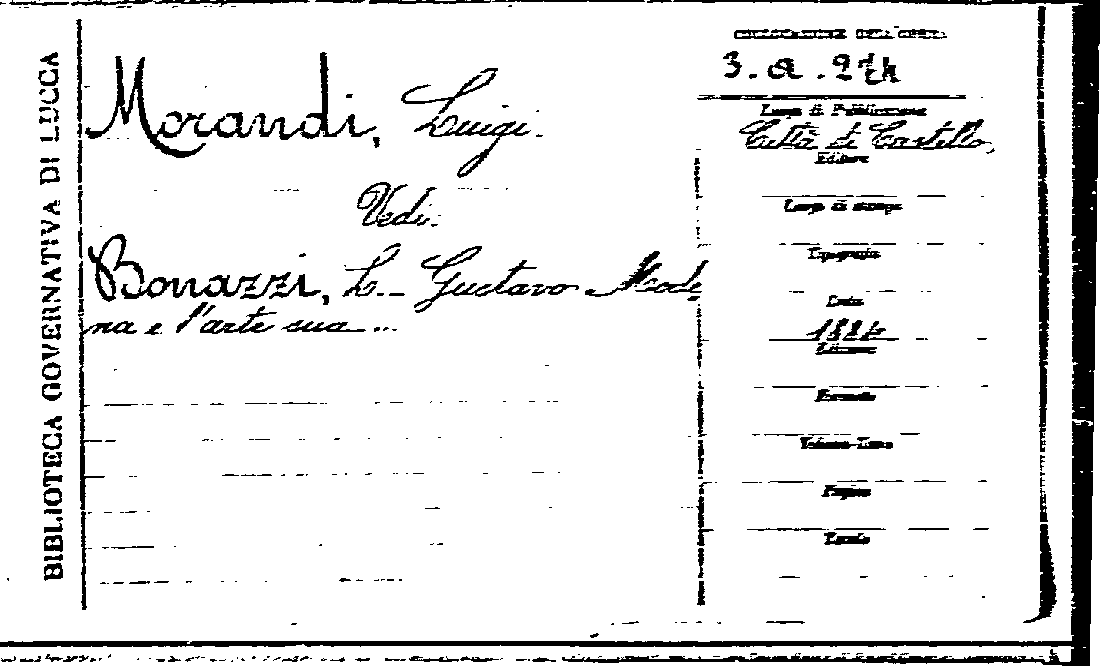 BIBLIOTECA GOVERNATIVA DI LUCCA
Morandi, Luigi.
Vedi:
Bonazzi, L. - Gustavo Mode
na e l'arte sua ...
COLLOCAZIONE DELL'OPERA
3. a. 274
Luogo di Pubblicazione
Città di Castello,
Editore
Luogo di stampa
Tipografia
Data
1884
Edizione
Formato
Volume-Tomo
Pagine
Tavole